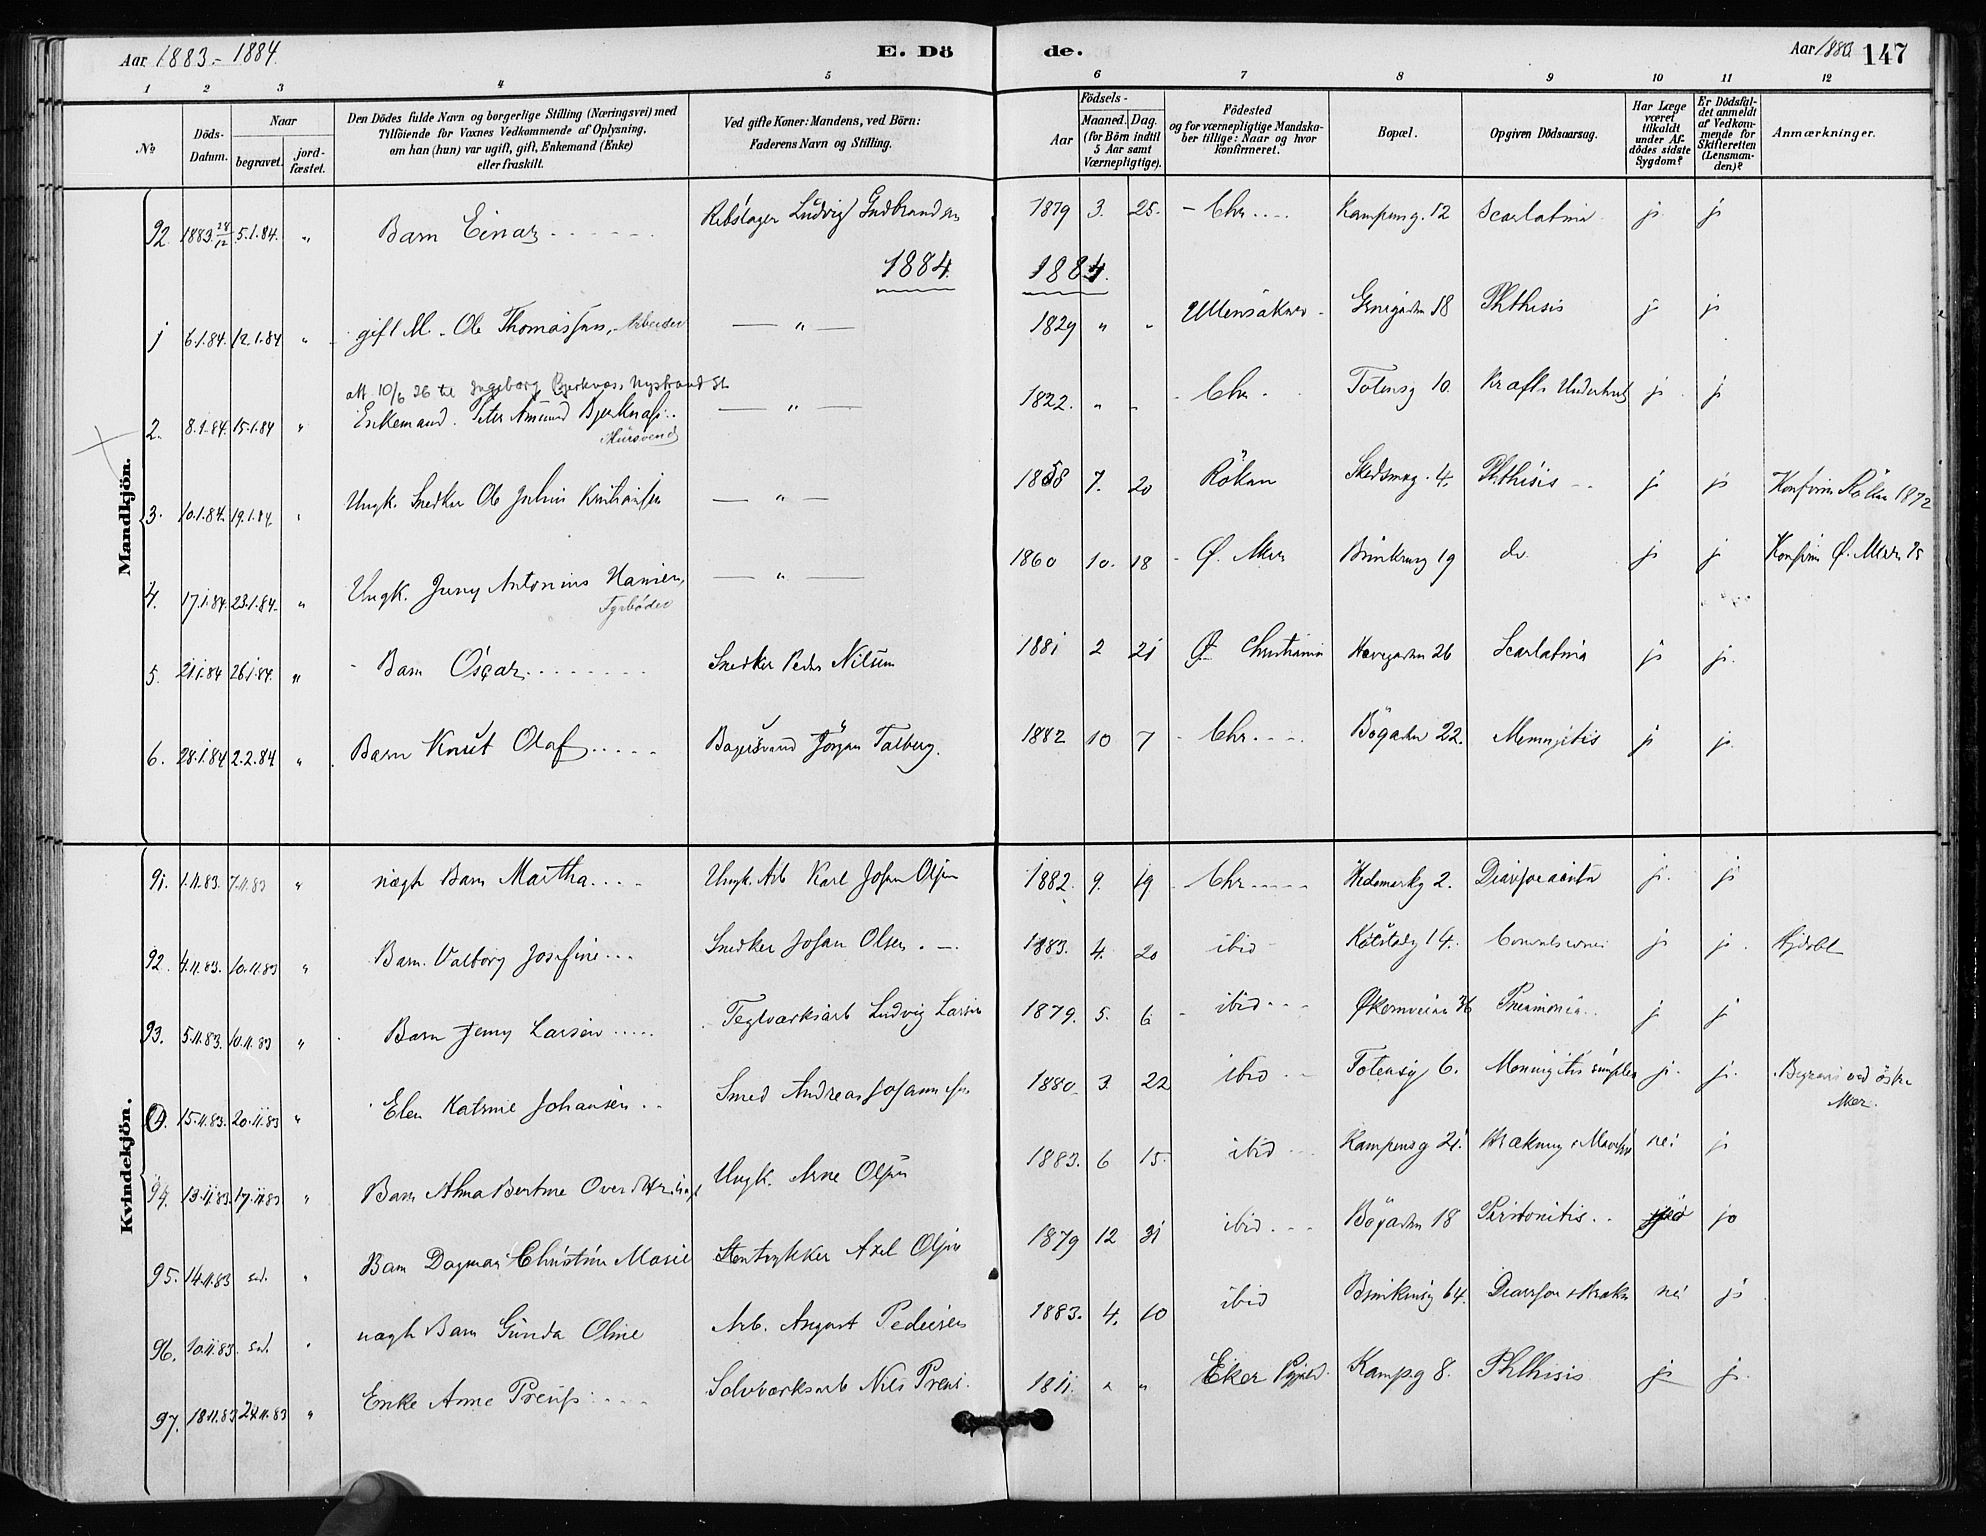 Aar 1883 - 1884.
E. Dö
de.
Aar 1883 147
1 2 3 4 5 6 7 8 9 10 11 12
No
Döds-Datum.
Naar
begravet.
jord-fæstet.
Den Dödes fulde Navn og borgerlige Stilling (Næringsvei) med
Tilföiende for Voxnes Vedkommende af Oplysning,
om han (hun) var ugift, gift, Enkemand (Enke)
eller fraskilt.
Ved gifte Koner: Mandens, ved Börn:
Faderens Navn og Stilling.
Födsels-
Aar
Maaned. Dag.
(for Börn indtil
5 Aar samt
Værnepligtige).
Födested
og for værnepligtige Mandska-
ber tillige: Naar og hvor
konfirmeret.
Bopæl.
Opgiven Dödsaarsag.
Har Læge
været
tilkaldt
under Af-
dödes sidste
Sygdom?
Er Dödsfal-
det anmeldt
af Vedkom-
mende for
Skifteretten
(Lensman-
den)?
Anmærkninger.
Mandkjön.
92. 1883 28/12 5.1.84. " Barn Einar Rebslager Ludvig Gudbrandsen 1879 3. 25. Chr. Kampeng. 12 Scarlatina j j
1884 1884.
1 6.1.84. 12.1.84 " gift M. Ole Thomassen, Arbeider — " — 1829 " " Ullensaker 18 Phthisis j j
att. 10/6 26 til Ingeborg Bjerknæs, Nystrand St
2. 8.1.84. 15.1.84 " Enkemand. Peter Amund Bjerknæs — " — 1822. " " Chr. Totensg 10. j j
Mursvend
3. 10.1.84. 19.1.84. " Ungk. Snedker Ole Julius Kristiansen — " — 1858 7. 20 Röken Skedsmog. 4. Phthisis j j Konfirm Röken 1872
4. 17.1.84. 23.1.84. " Ungk. Jens Antonius Hansen, — " — 1860 10. 18 Ø. Aker 19 do. j j Konfirm Ø. Aker 75
Fyrböder
5. 21.1.84 26.1.84. " Barn Oscar Snedker Peder Nilsen 1881 2 21 Christiania 26 Scarlatina j j.
6. 28.1.84 2.2.84. " Barn Knut Olaf Bagersvend Jörgen Talberg. 1882 10 7 Chr. Bögaden 22. Meningitis j j.
Kvindekjön.
91. 1.11.83. 7.11.83 " uægte Barn Martha Ungk. Arb Karl Johan Olsen 1882. 9. 19 Chr. Hedemarkg 2. j. j
92. 4.11.83. 10.11.83 " Barn Valborg Josefine Snedker Johan Olsen 1883. 4. 20 ibid 14. j j.
93. 5.11.83. 10.11.83 " Barn Jenny Larsen Teglværksarb Ludvig Larsen 1879. 5. 6 ibid Økernveien 36 Pneumonia j j
15.11.83. 20.11.83 " Elen Katrine Johansen Smed Andreas Johannesen 1880. 3. 22 ibid Totensg 6. Meningitis simplex j. j. Begraves ved östre
Aker.
94. 13.11.83. 17.11.83 " Barn Alma Bertine Ungk. Arne Olsen 1883. 6 15. ibid Kampensg 21. nei j
95. 14.11.83 sd. " Barn Dagmar Christine Marie Stentrykker Axel Olsen 1879 12 31 ibid. Bögaden 18 Peritonitis jo
96. 10.11.83. sd. " uægte Barn Gunda Oline Arb. August Pedersen 1883. 4. 10 ibid 64. nei j
97. 18.11.83 24.11.83 " Enke Anne Preuss Nils Preus. 1811. " " Eker Kampg 8. Phthisis j j.